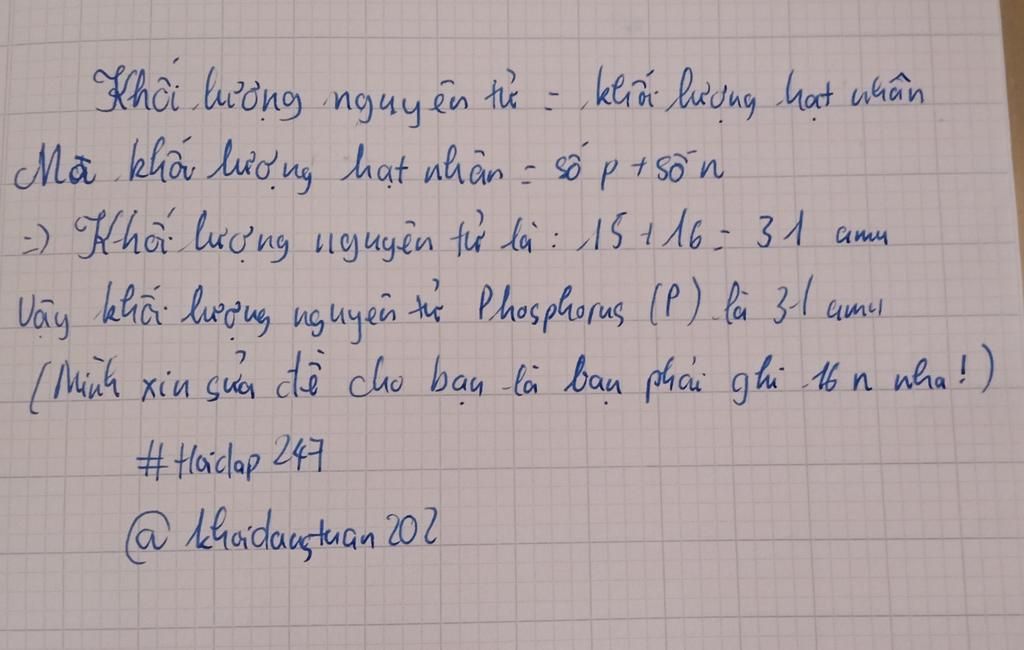 Khối lượng nguyên tử = khối lượng hạt nhân
Mà khối lượng hạt nhân = số p + số n
=> Khối lượng nguyên tử là: 15 + 16 = 31 amu
Vậy khối lượng nguyên tử Phosphorus (P) là 31 amu
(Mình xin sửa đề cho bạn là bạn phải ghi 16 n nha!)
#Hoidap 247
@khaidangtuan202